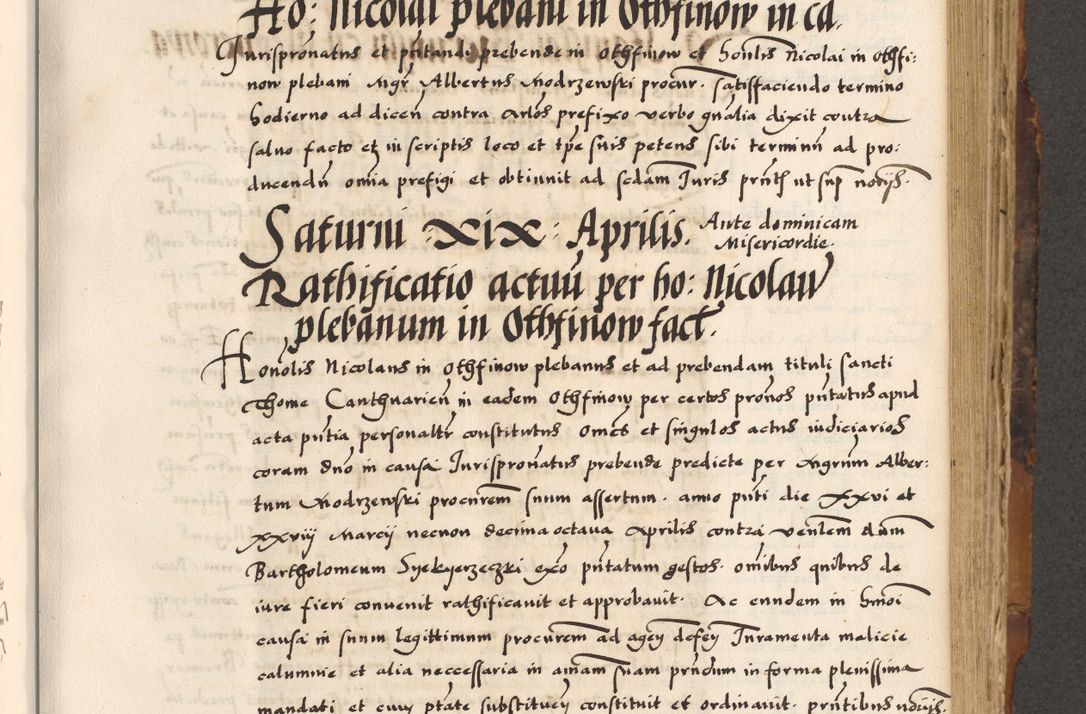 Ho: Nicolai plebani in Othfinow in ca.
Jurispronatus et pntand prebende in Othfinow et honlis Nicolai in Othfi:
now plebani Mgr Albertus Modrzewski procur. satisfaciendo termino
hodierno ad dicen contra Artos prefixo verbo gnalia dixit contra
saluo facto etz in scriptis loco et tpe suis petens sibi terminu ad pro:
ducendu omia prefigi et obtinuit ad scdam Juris pnth ut sup notijs.
Saturni xix Aprilis. Ante dominicam
Misericordie.
Rathificatio actuu per ho: Nicolau
plebanum in Othfinow fact.
Honolis Nicolaus in Othfinow plebanus et ad prebendam tituli sancti
Thome Canthuarien in eadem Othfinow per certos pronos pntatus apud
acta pntia personaltr constitutus omes et singulos actus iudiciarios
coram dno in causa Jurispronatus prebende predicte per Mgrum Alber:
tum Modrzewski procurem suum assertum. anno pnti die xxvi et
xxviij Marcij necnon decima octaua Aprilis contra venlem dnm
Bartholomeum Syekyerzeczki exo pntatum gestos. omibus quibus de
iure fieri conuenit rathificauit et approbauit. Ac eundem in hmoi
causa in suum legittimum procurem ad agey defey Juramenta malicie
calumnie et alia neccessaria in aiam suam prndum in forma plenissima
mandati et cum ptate substituey constituit et ordinauit. prntibus notijs.